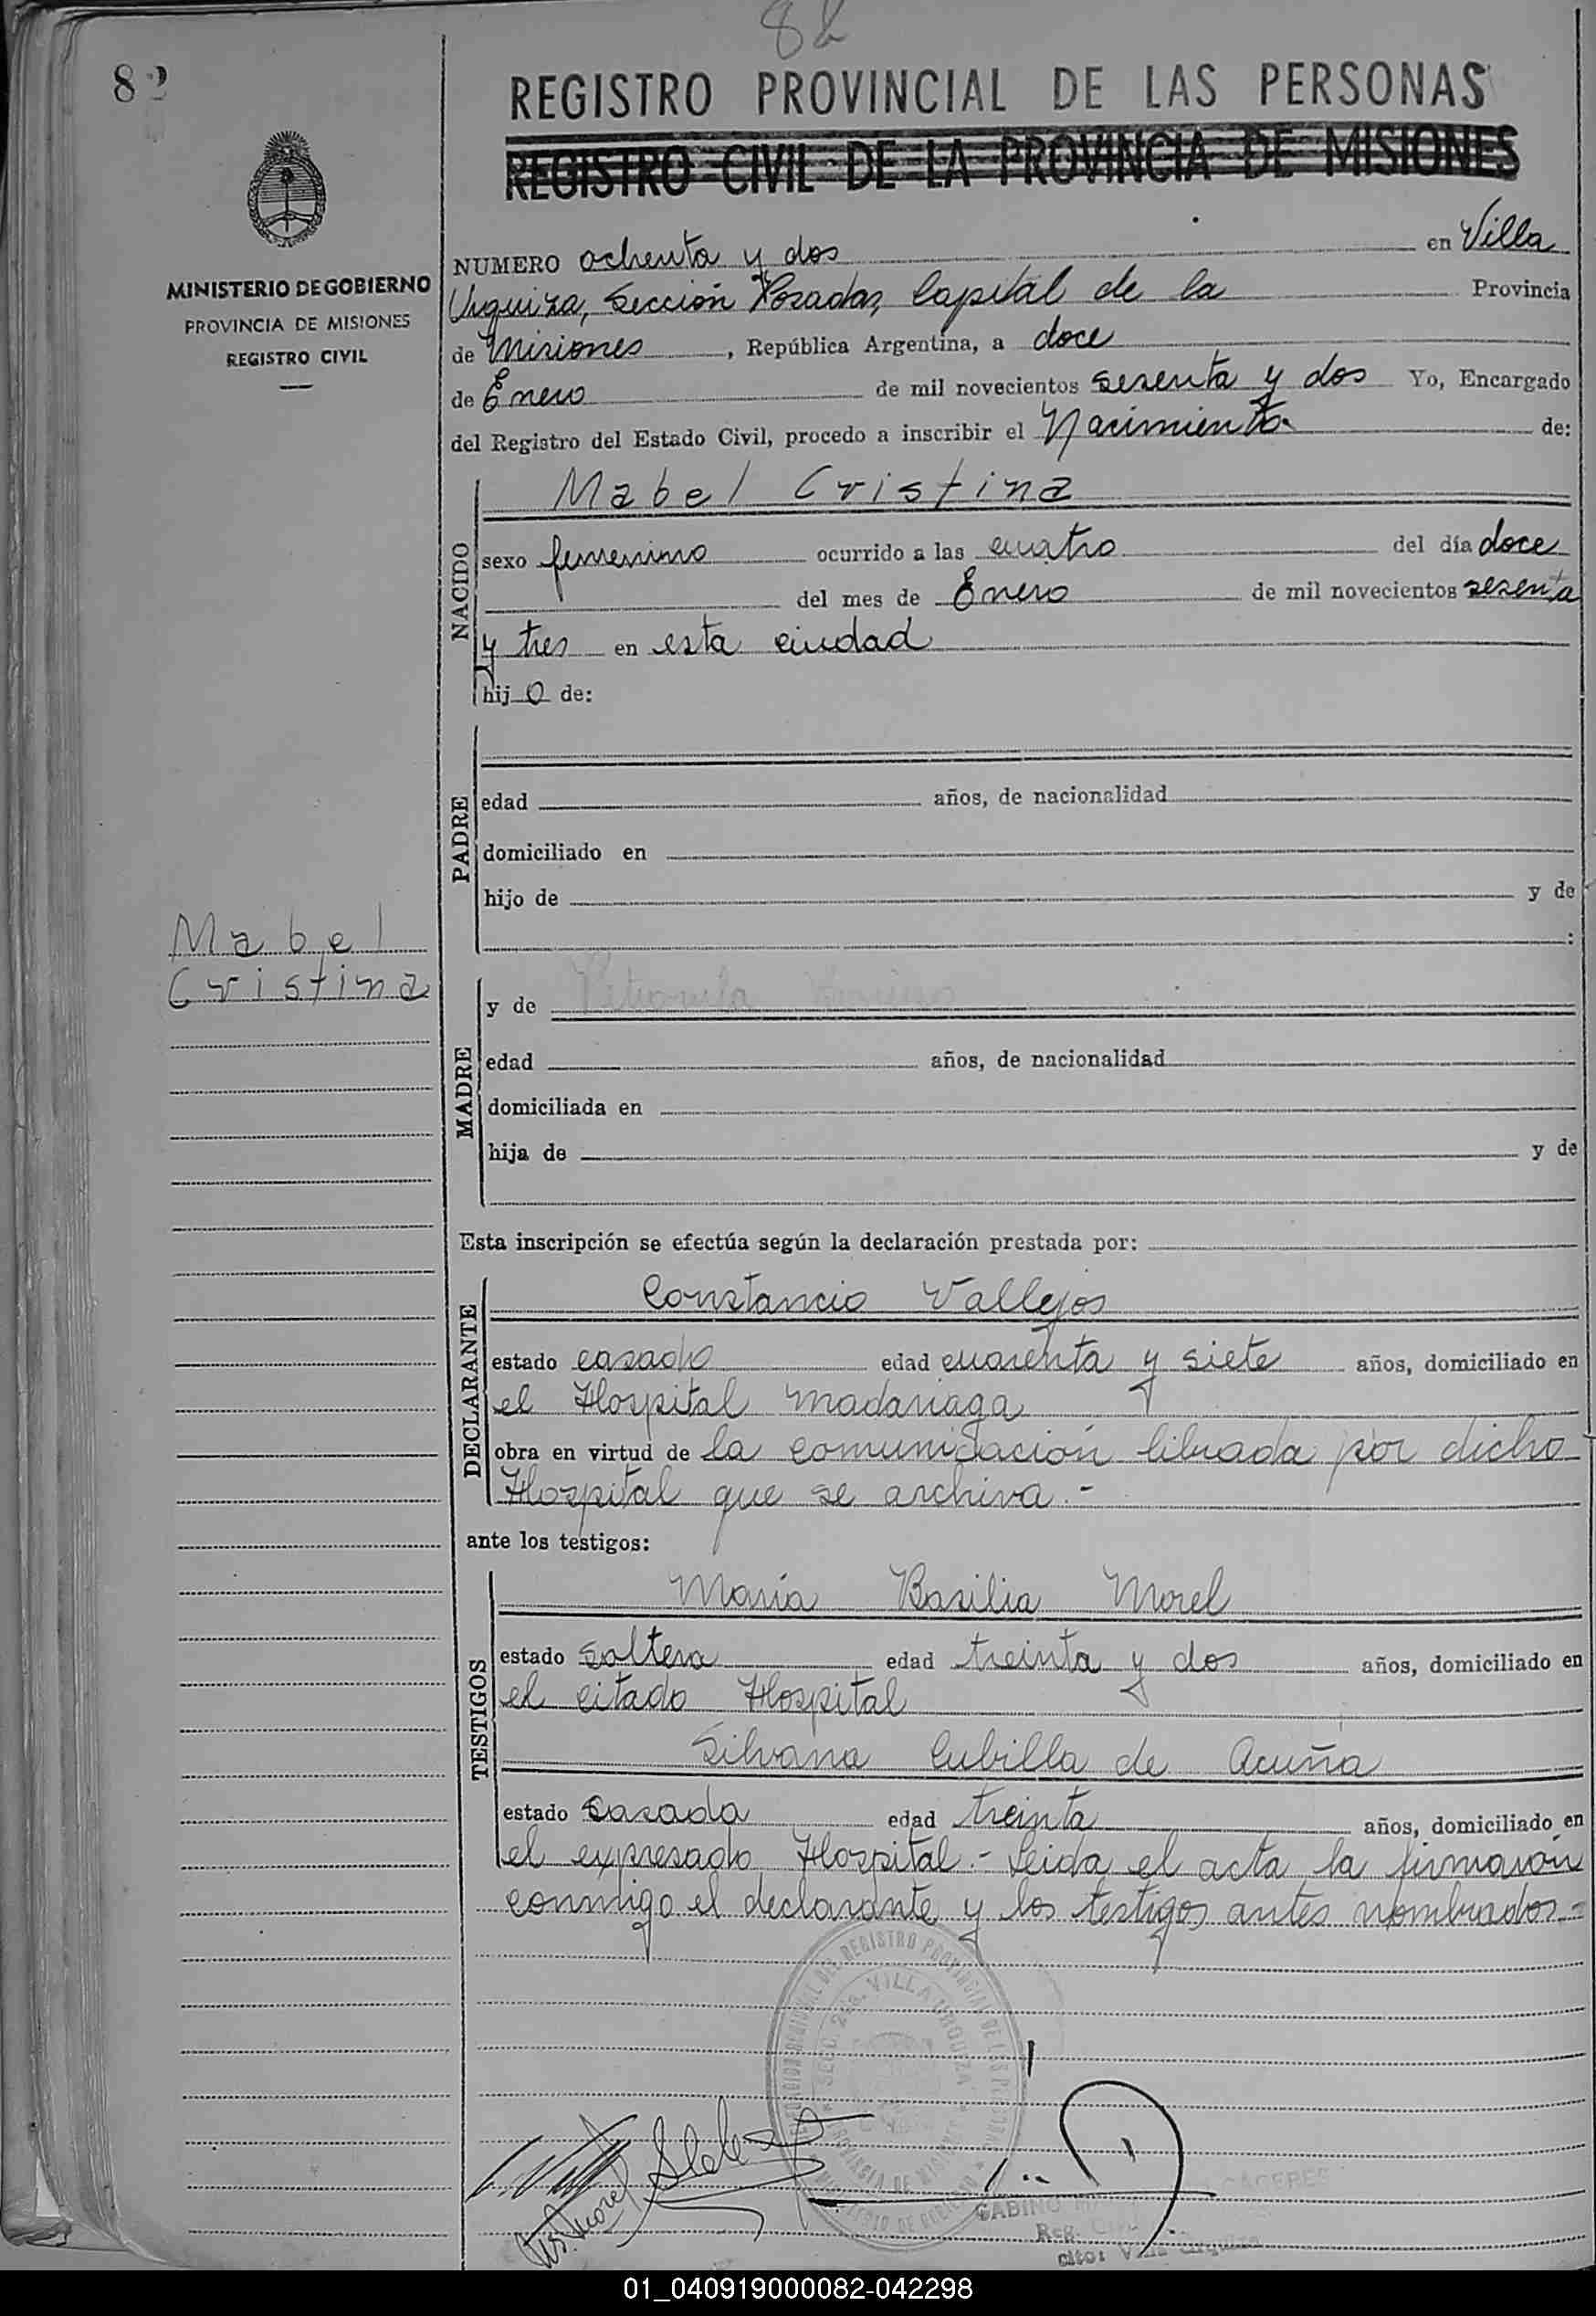 82
82
REGISTRO PROVINCIAL DE LAS PERSONAS
REGISTRO CIVIL DE LA PROVINCIA DE MISIONES
MINISTERIO DE GOBIERNO
PROVINCIA DE MISIONES
REGISTRO CIVIL
NUMERO ochenta y dos en Villa
Urquiza, Sección Posadas, Capital de la Provincia
de Misiones, República Argentina, a doce
de Enero de mil novecientos sesenta y dos Yo, Encargado
del Registro del Estado Civil, procedo a inscribir el Nacimiento. de:
NACIDO
Mabel Cristina
sexo femenino ocurrido a las cuatro del día doce
del mes de Enero de mil novecientos sesenta
y tres en esta ciudad
hijo de:
PADRE
edad años, de nacionalidad
domiciliado en
hijo de y de
:
Mabel
Cristina
MADRE
y de Petronila
edad años, de nacionalidad
domiciliada en
hija de y de
Esta inscripción se efectúa según la declaración prestada por:
DECLARANTE
Constancio Vallejos
estado casado edad cuarenta y siete años, domiciliado en
el Hospital Madariaga
obra en virtud de la comunicación librada por dicho
Hospital que se archiva.-
ante los testigos:
TESTIGOS
María Basilia Morel
estado soltera edad treinta y dos años, domiciliado en
el citado Hospital
Silvana Cubilla de Acuña
estado casada edad treinta años, domiciliado en
el expresado Hospital.- Leida el acta la firmaron
conmigo el declarante y los testigos antes nombrados.=
REGISTRO PROVINCIAL DE LAS PERSONAS
SECC. 2da. VILLA URQUIZA
PROVINCIA DE MISIONES
MINISTERIO DE GOBIERNO
GABINO CACERES
Reg. Civil
Villa Urquiza
01_040919000082-042298